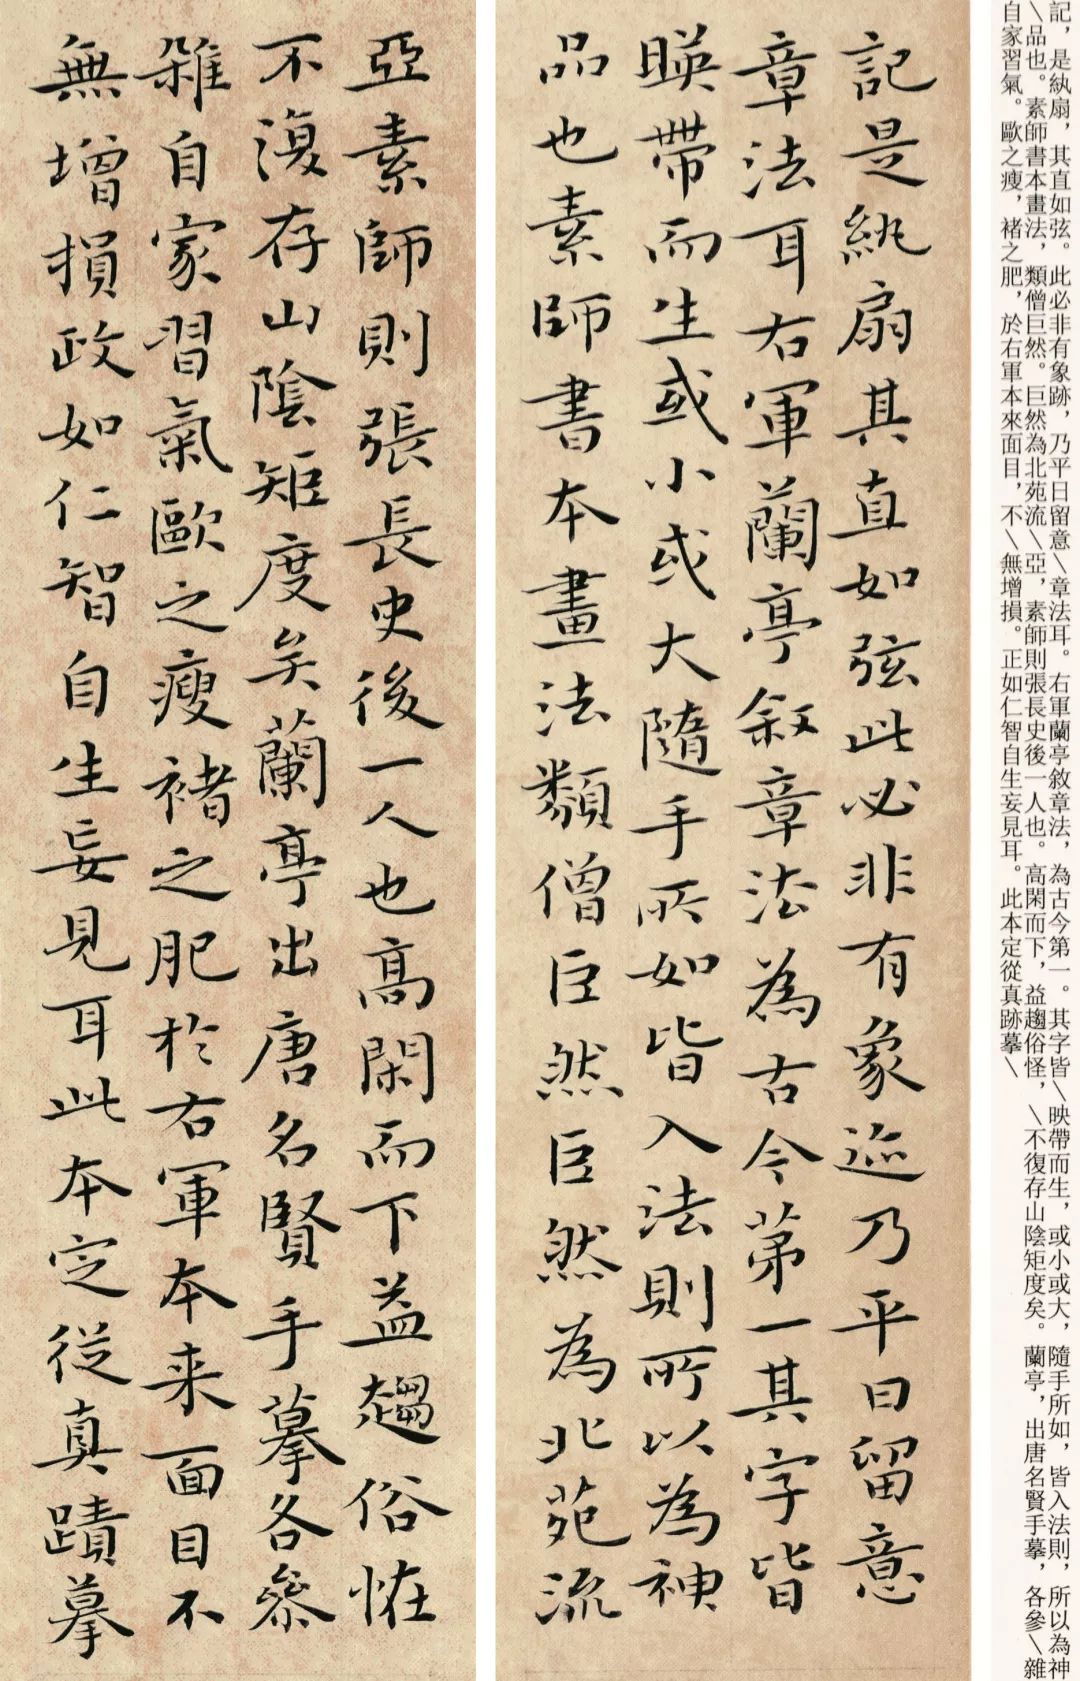 記是紈扇其直如弦此必非有象迹乃平日留意
章法耳右軍蘭亭叙章法為古今第一其字皆
暎帶而生或小或大隨手所如皆入法則所以為神
品也素師書本畫法類僧巨然巨然為北苑流
亞素師則張長史後一人也高閑而下益趨俗怪
不復存山陰矩度矣蘭亭出唐名賢手摹各參
雜自家習氣歐之瘦褚之肥於右軍本来面目不
無增損政如仁智自生妄見耳此本定從真蹟摹
記，是紈扇，其直如弦。此必非有象跡，乃平日留意\章法耳。右軍蘭亭敘章法，為古今第一。其字皆\映帶而生，或小或大，隨手所如，皆入法則，所以為神
\品也。素師書本畫法，類僧巨然。巨然為北苑流\亞，素師則張長史後一人也。高閑而下，益趨俗怪，\不復存山陰矩度矣。蘭亭，出唐名賢手摹，各參\雜
自家習氣。歐之瘦，褚之肥，於右軍本來面目，不\無增損。正如仁智自生妄見耳。此本定從真跡摹\